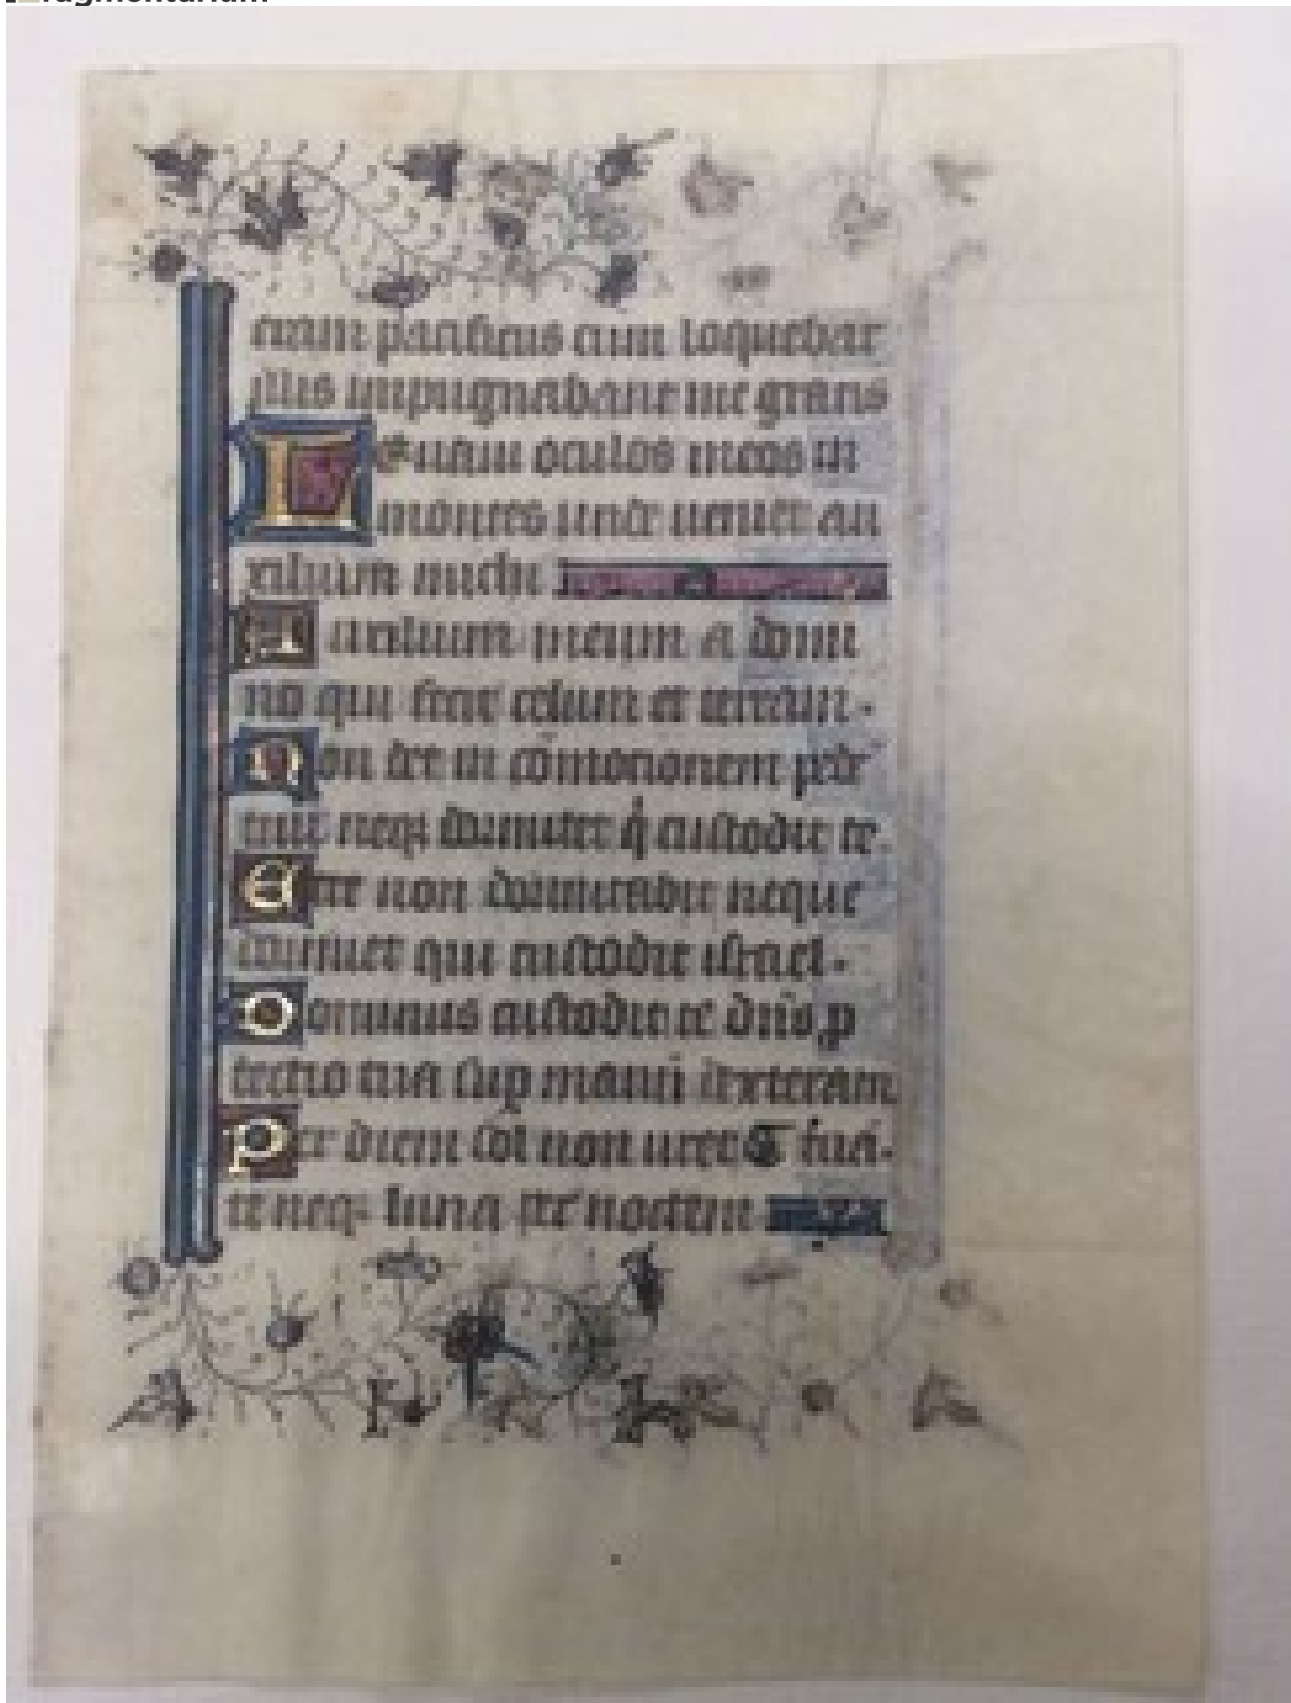 Fragmentarium
eram pacificus cum loquebar
illis impugnabant me gratis
Leuaui oculos meos in
montes unde ueniet au
xilium michi
Auxilium meum a domi
no qui fecit celum et terram.
Non det in cōmotionem pedē
tuum neqꝫ dormitet q̇ custodit te.
Ecce non dormitabit neque
dormiet qui custodit israel.
Dominus custodit te dn̄s ꝓ
tectio tua sup manū dexteram
Per diem sol non uret
te neqꝫ luna per noctem